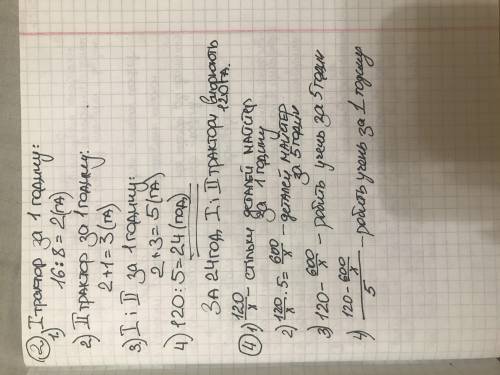 ② I трактор за 1 годину:
1) 16:8=2(га)
2) II трактор за 1 годину:
2+1=3(га)
3) I і II за 1 годину:
2+3=5(га)
4) 120:5=24(год)
За 24 год I і II трактори виорюють
120 га.
④ 1) 120/x - стільки деталей майстер
за 1 годину
2) 120/x · 5 = 600/x - деталей майстер
за 5 годин
3) 120 - 600/x - робить учень за 5 годин
4) (120 - 600/x)/5 - робить учень за 1 годину